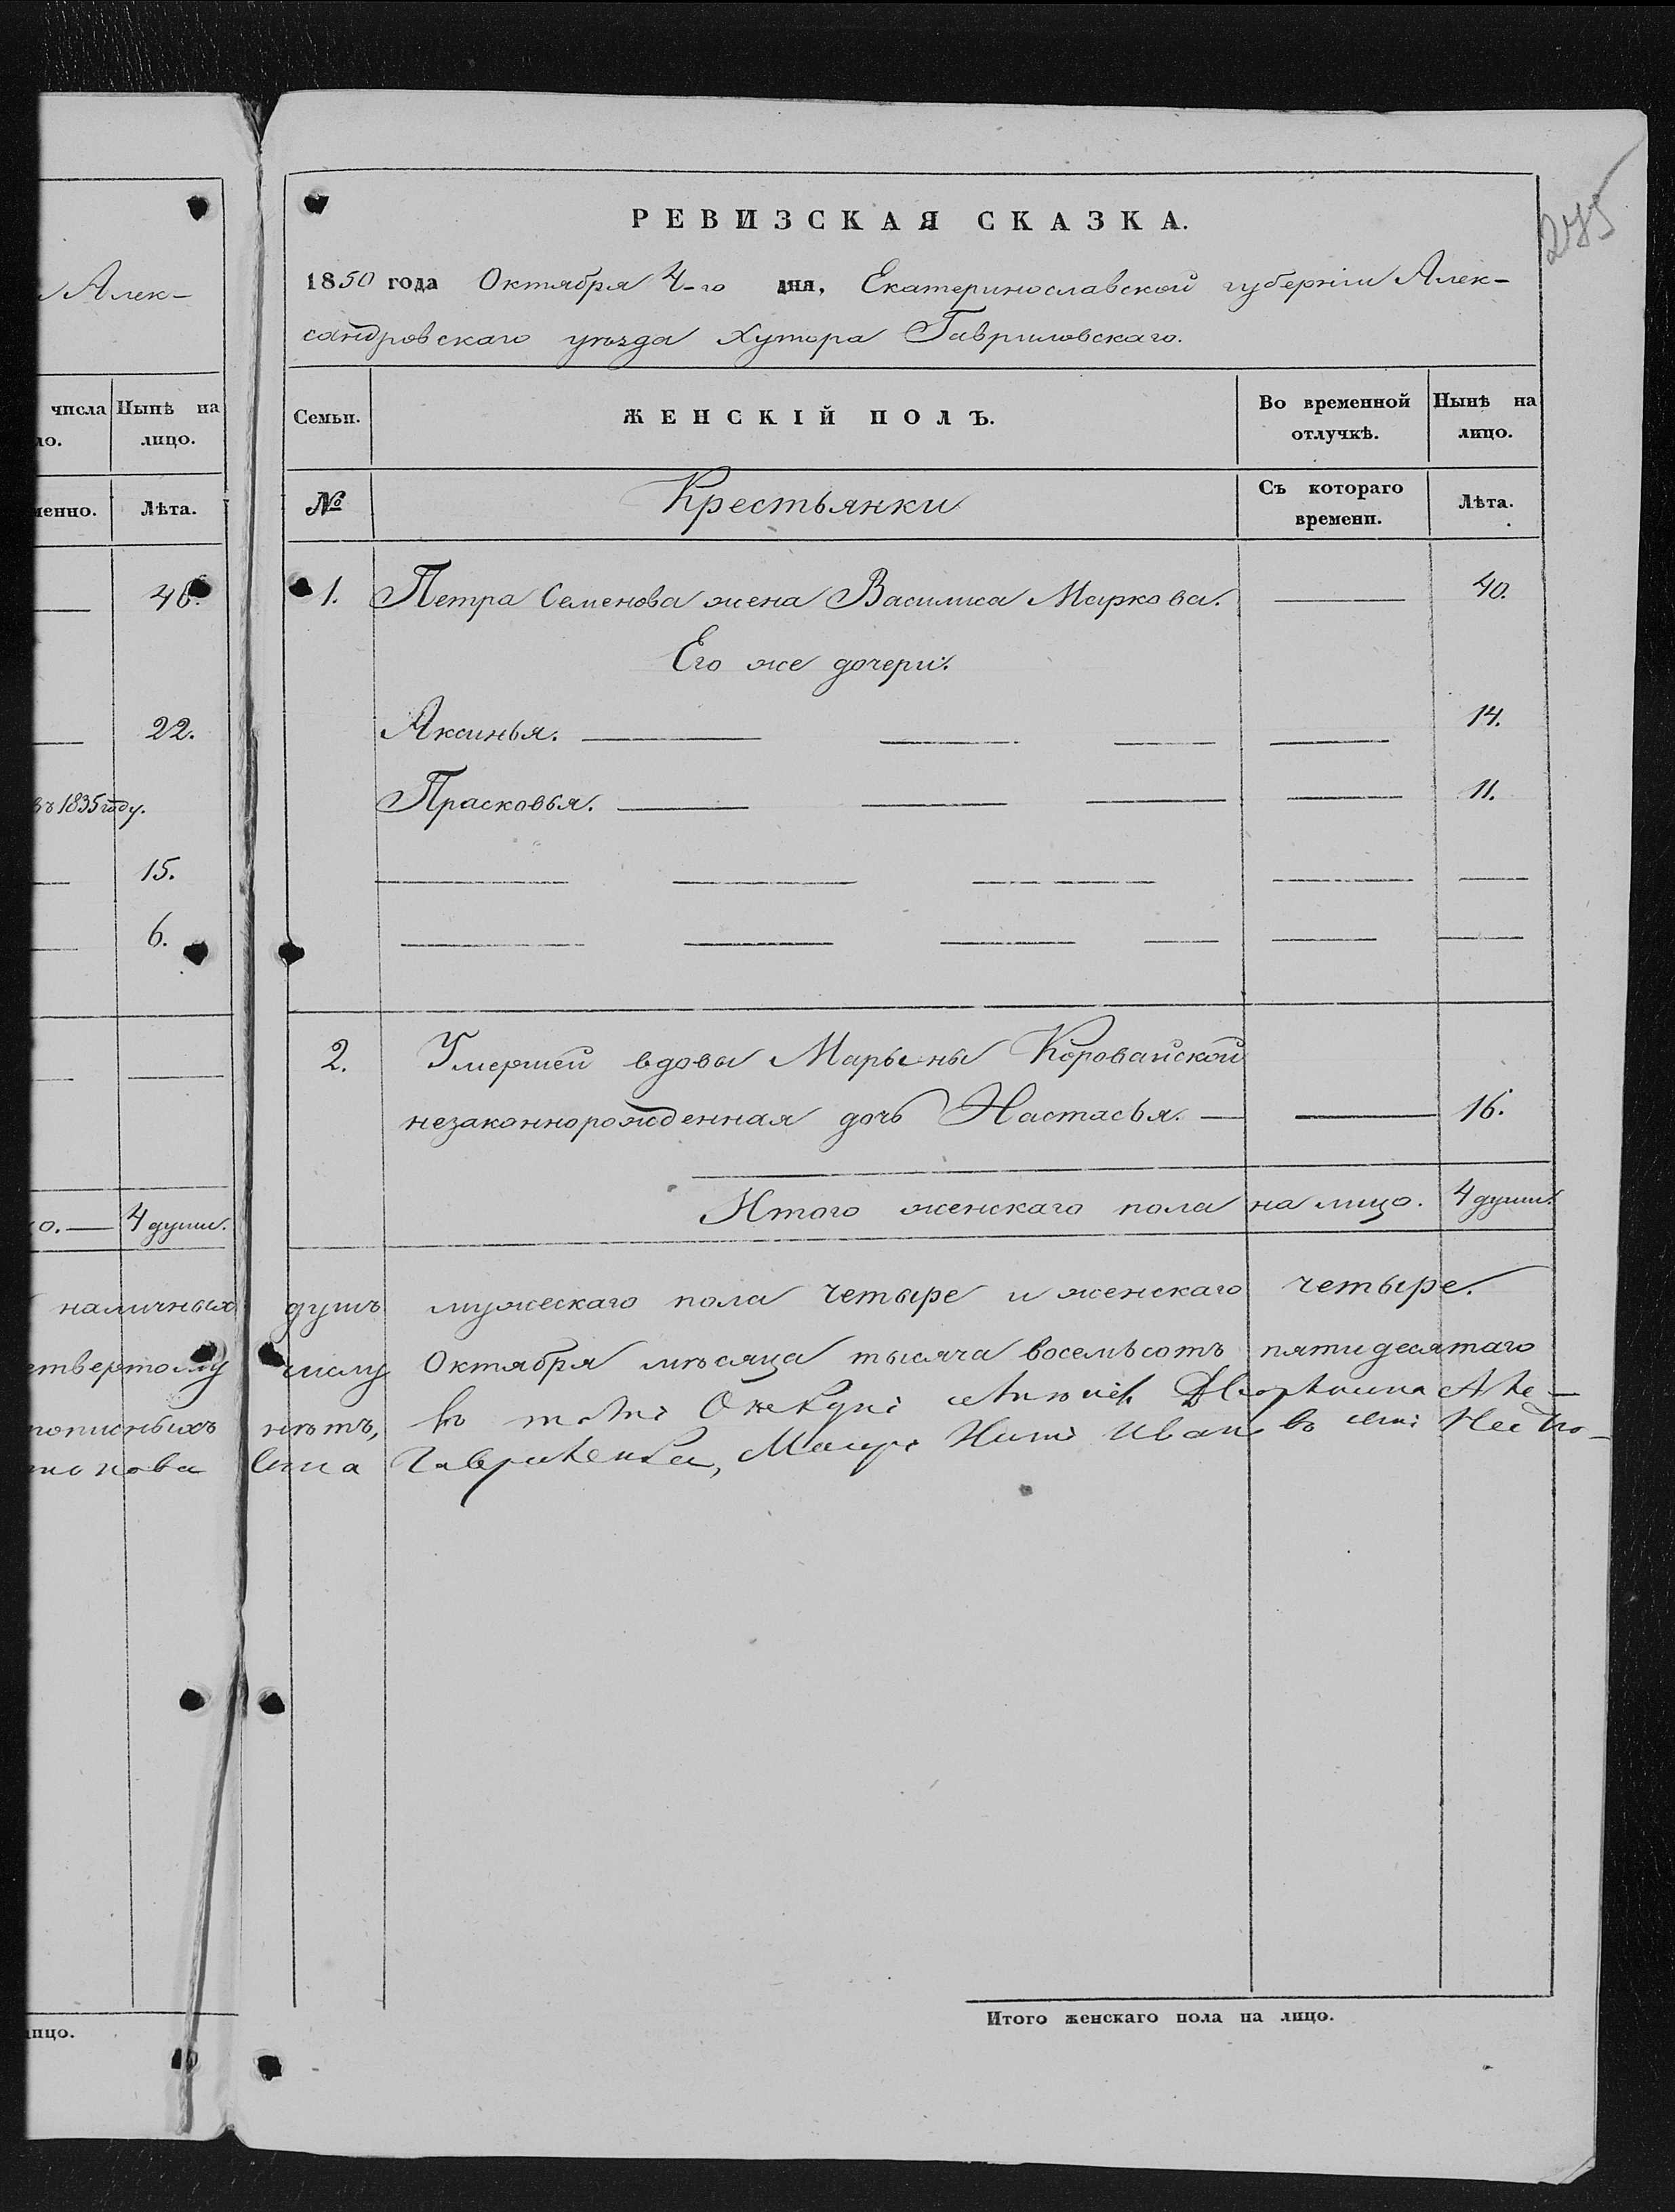 Алек-
числа Нынѣ на
ло. лицо.
менно. Лѣта.
46.
22.
въ 1835 году.
15.
6.
о. — 4 души.
наличныхъ
етвертому
рописныхъ
нова
лицо.
275
РЕВИЗСКАЯ СКАЗКА.
1850 года Октября 4-го дня, Екатеринославской губерніи Алек-
сандровскаго уѣзда Хутора Гавриловскаго.
Семьи. ЖЕНСКІЙ ПОЛЪ. Во временной отлучкѣ. Нынѣ на лицо.
№ Крестьянки Съ котораго времени. Лѣта.
1. Петра Семенова жена Василиса Маркова. — 40.
Его же дочери:
Аксинья. — 14.
Прасковья. — 11.
2. Умершей вдовы Марьены Коровайской
незаконнорожденная дочь Настасья. — 16.
Итого женскаго пола на лицо. 4 души.
душъ мужескаго пола четыре и женскаго четыре.
числу Октября мѣсяца тысяча восемьсотъ пятидесятаго
нѣтъ, въ томъ Опекунъ Дворянина Але-
Гавриленка, Иванъ въ сынъ
Итого женскаго пола на лицо.